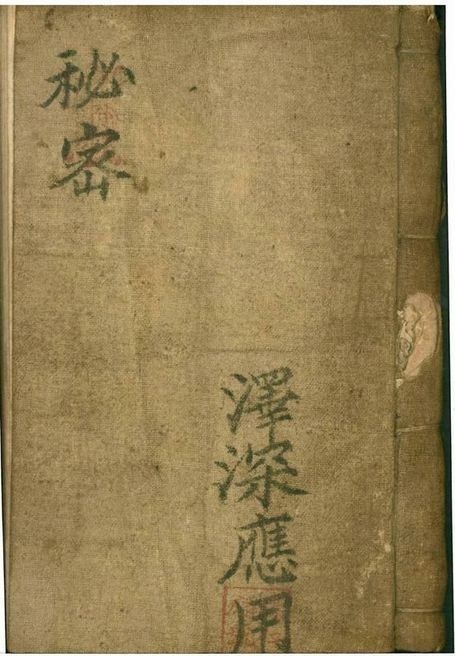 秘密
澤深應用